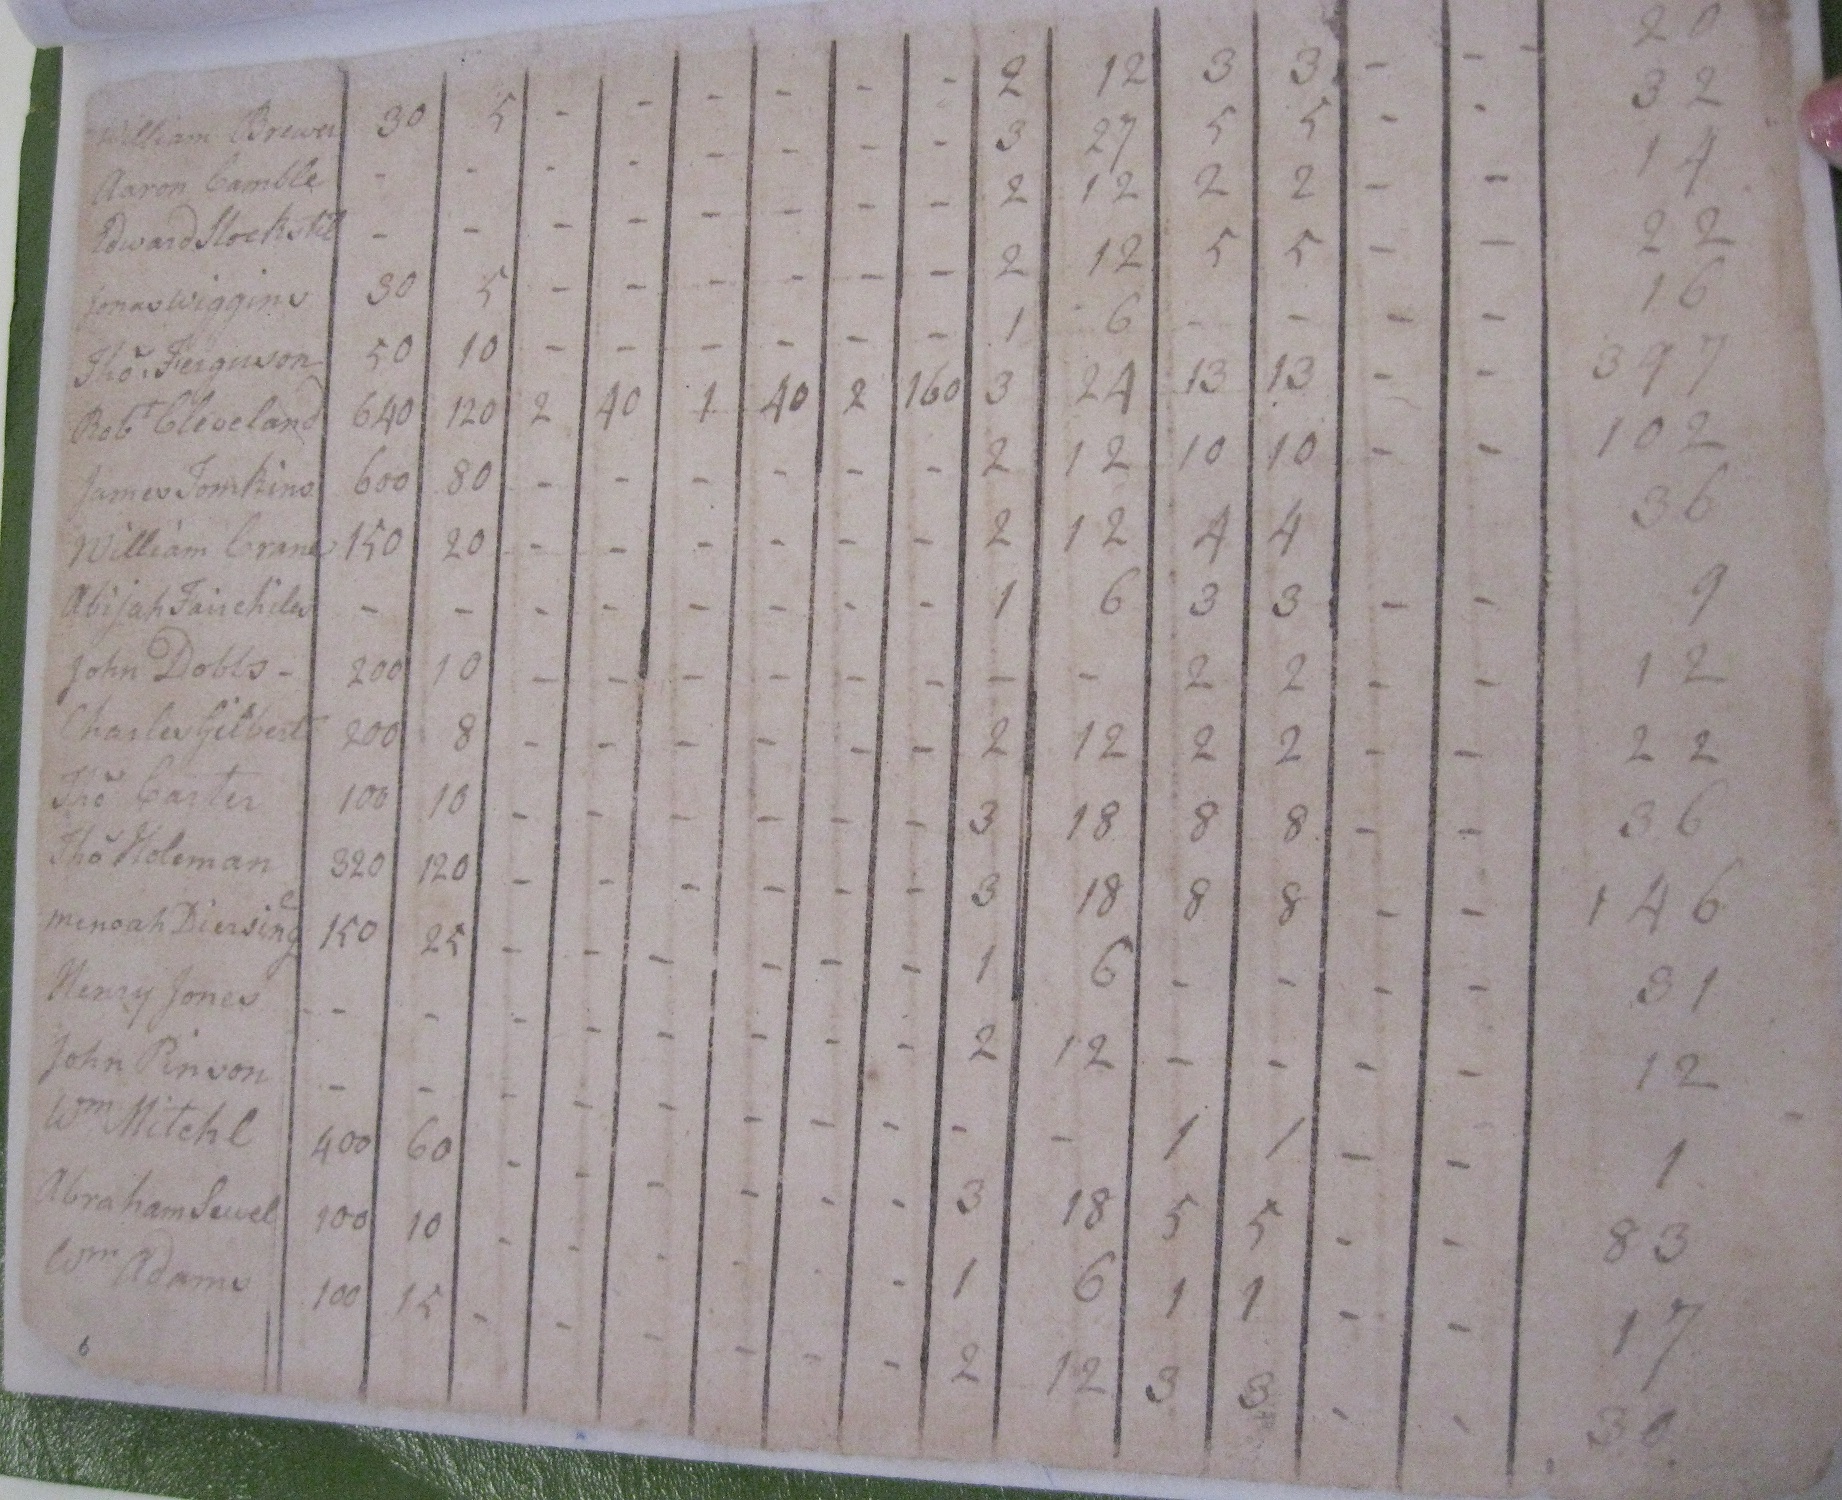 William Brewer 30 5 - - - - - - 2 12 3 3 - - 20
Aaron Camble - - - - - - - - 3 27 5 5 - - 32
Edward Stockstil - - - - - - - - 2 12 2 2 - - 14
Jonas Wiggins 30 5 - - - - - - 2 12 5 5 - - 22
Tho⁠s Ferguson 50 10 - - - - - - 1 6 - - - - 16
Robt Cleveland 640 120 2 40 1 40 2 160 3 24 13 13 - - 397
James Tomkins 600 80 - - - - - - 2 12 10 10 - - 102
William Crane 150 20 - - - - - - 2 12 4 4 36
Abijah Fairchilds - - - - - - - - 1 6 3 3 - - 9
John Dobbs - 200 10 - - - - - - - - 2 2 - - 12
Charles Gilbert 200 8 - - - - - - 2 12 2 2 - - 22
Thos Carter 100 10 - - - - - - 3 18 8 8 - - 36
Thos Holeman 320 120 - - - - - - 3 18 8 8 - - 146
Menoah Diersing 150 25 - - - - - - 1 6 - - - - 31
Henry Jones - - - - - - - - 2 12 - - - - 12
John Pinson - - - - - - - - - - 1 1 - - 1
Wm Mitchl 400 60 - - - - - - 3 18 5 5 - - 83
Abraham Sewel 100 10 - - - - - - 1 6 1 1 - - 17
Wm Adams 100 15 - - - - - - 2 12 3 3 - - 30
6